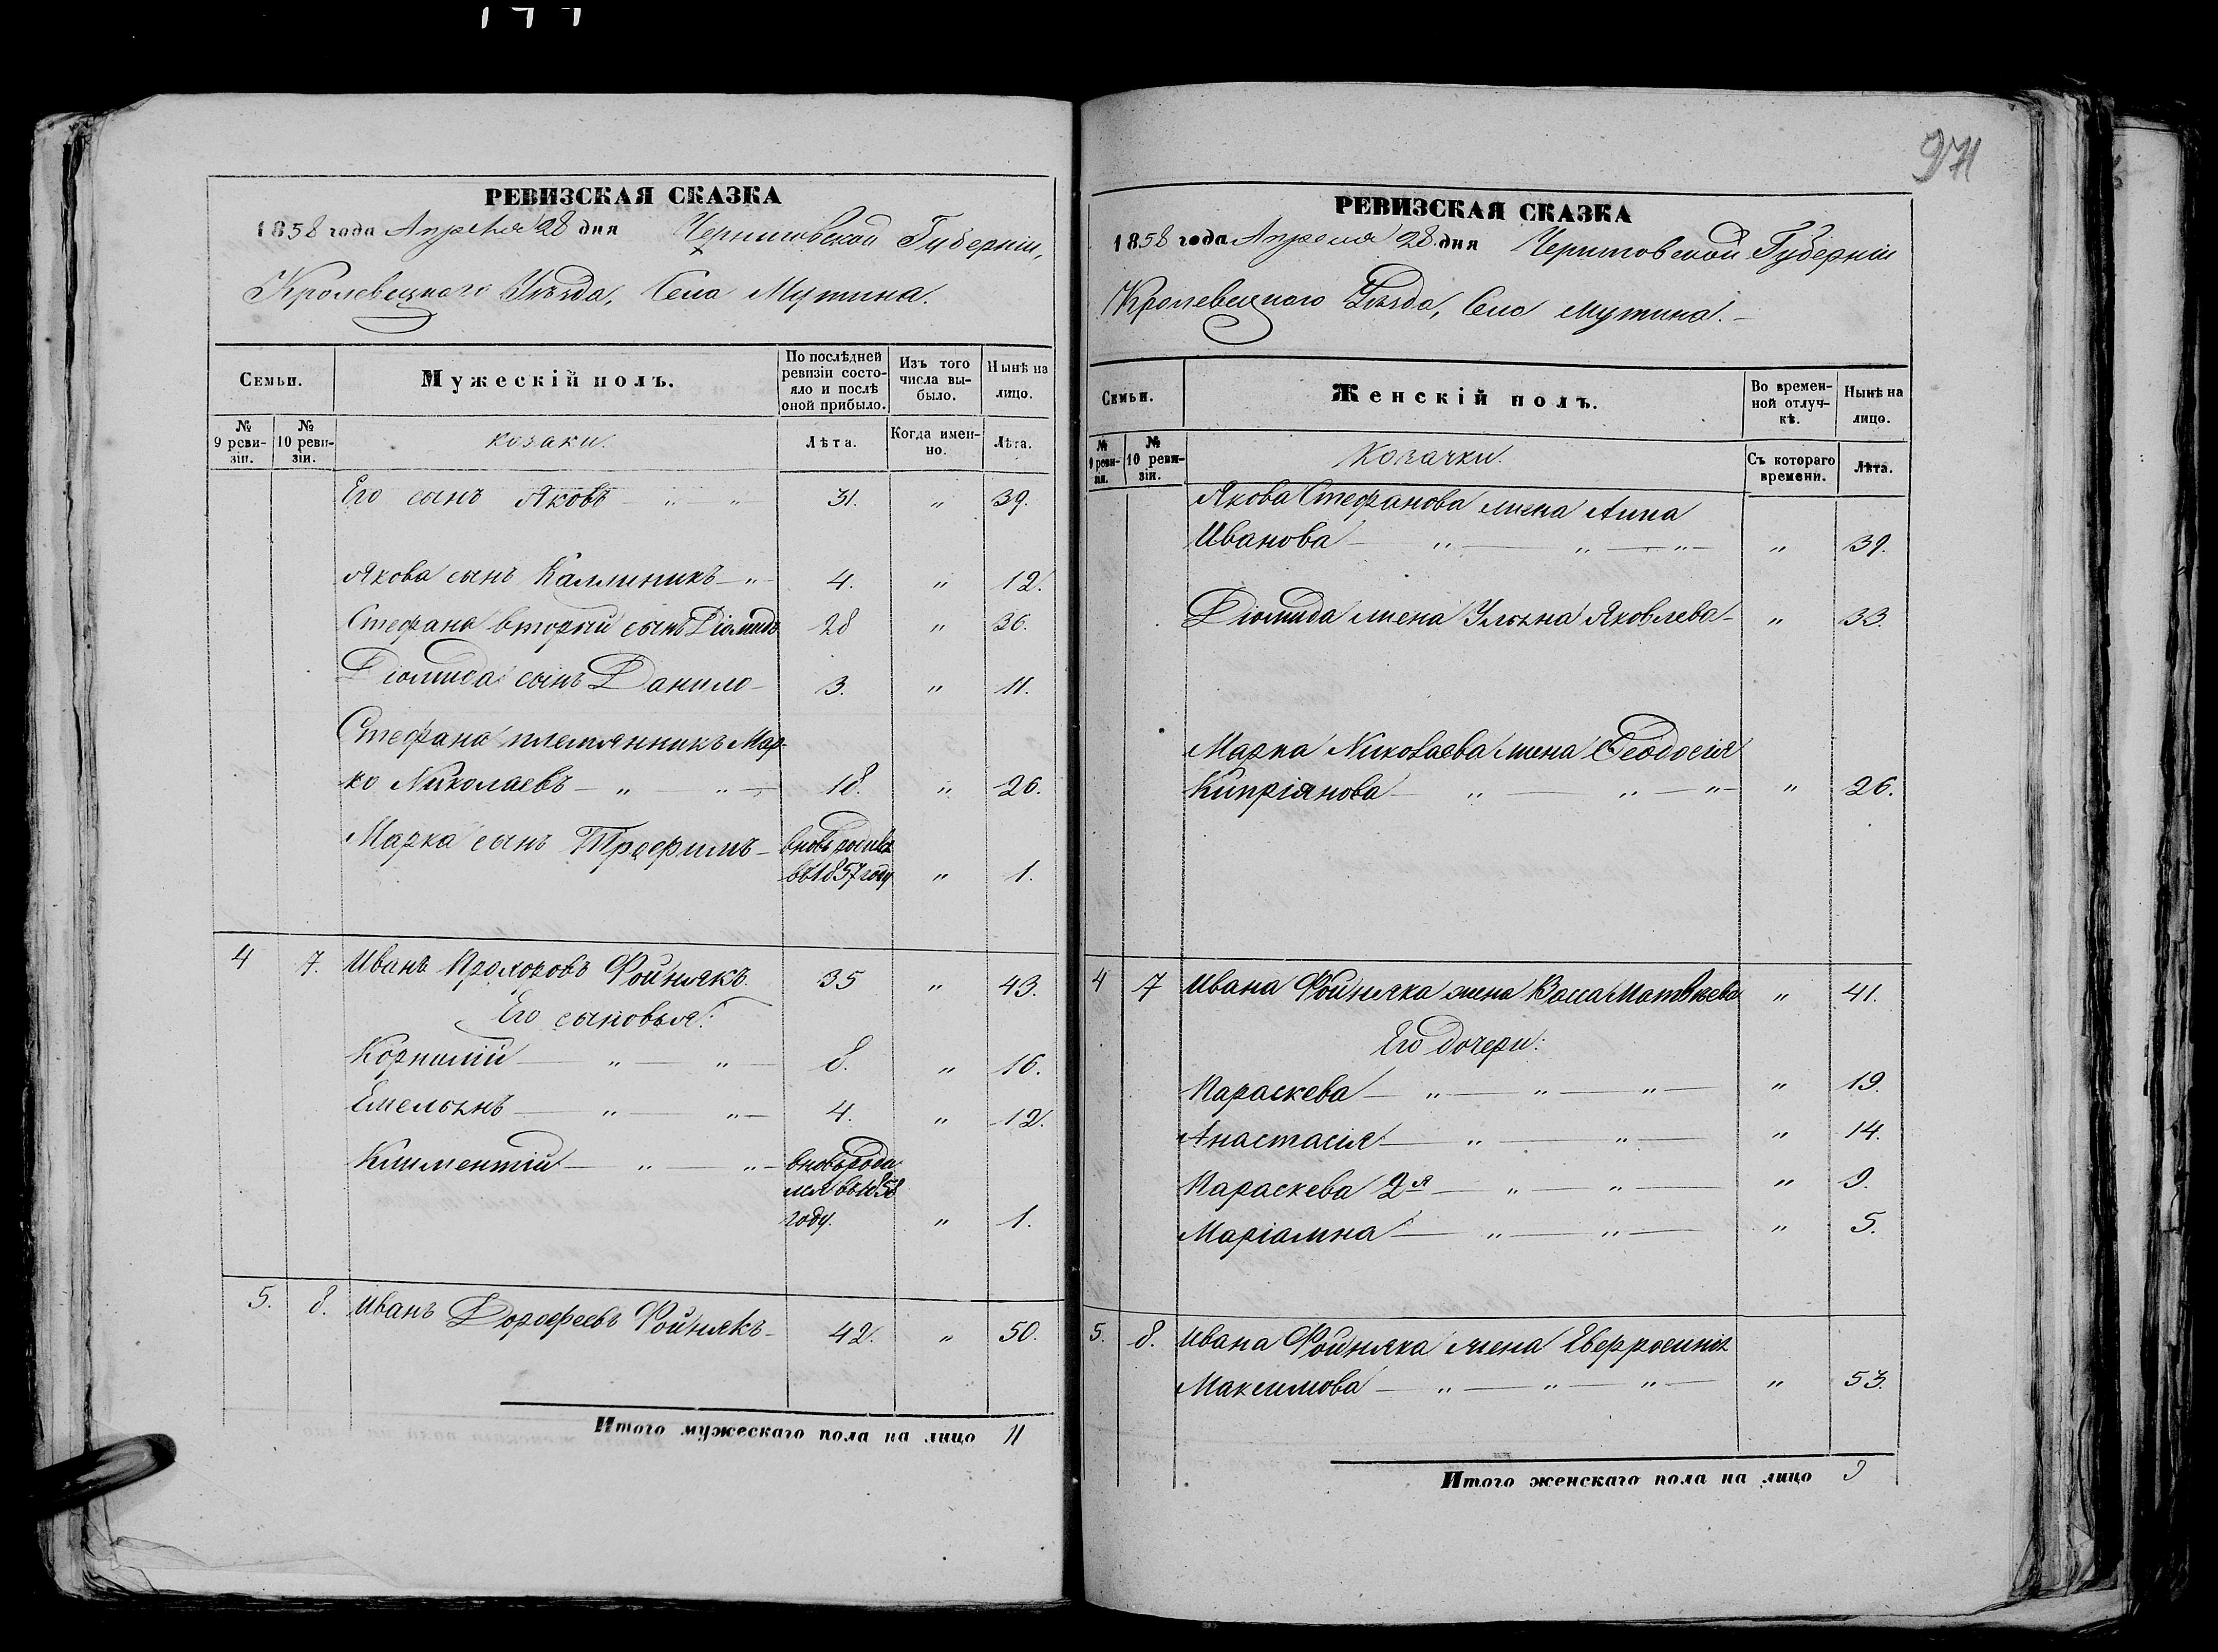 РЕВИЗСКАЯ СКАЗКА
1858 года Апреля 28 дня Черниговской Губерніи,
Кролевецкаго Уѣзда, Села Мутина.
Семьи.
Мужескій полъ.
По послѣдней ревизіи состояло и послѣ оной прибыло.
Изъ того числа выбыло.
Нынѣ на лицо.
№ 9 ревизіи.
№ 10 ревизіи.
Козаки.
Лѣта.
Когда именно.
Лѣта.
Его сынъ Яковъ — „ „ 31. „ 39.
Якова сынъ Каллиникъ — „ — 4. „ 12.
Стефана вторый сынъ Діомидъ 28 „ 36.
Діомида сынъ Данило — 3. „ 11.
Стефана племянникъ Мар-
ко Николаевъ — „ „ — 18. „ 26.
Марка сынъ Трофимъ — вновь родився
въ 1857 году „ 1.
4 7. Иванъ Прохоровъ Фойнякъ. 35 „ 43.
Его сыновья:
Корнилій — „ — „ — 8. „ 16.
Емельянъ — „ „ — 4. „ 12.
Климентій — „ — „ — вновь роди
лся въ 1858
году. „ 1.
5. 8. Иванъ Дорофеевъ Фойнякъ — 42. „ 50.
Итого мужескаго пола на лицо 11
971
РЕВИЗСКАЯ СКАЗКА
1858 года Апреля 28 дня Черниговской Губерніи
Кролевецкаго Уѣзда, Села Мутина. —
Семьи.
Женскій полъ.
Во временной отлучкѣ.
Нынѣ на лицо.
№ 9 ревизіи.
№ 10 ревизіи.
Козачки.
Съ котораго времени.
Лѣта.
Якова Стефанова жена Анна
Иванова — „ — „ — „ — „ 39.
Діомида жена Ульяна Яковлева — „ 33.
Марка Николаева жена Феодосія
Кипріянова — „ — „ — „ — „ 26.
4 7 Ивана Фойняка жена Васса Матвѣева „ 41.
Его дочери:
Параскева — „ — „ — „ — „ 19.
Анастасія — „ — „ — „ 14.
Параскева 2я — „ — „ — „ 9.
Маріамна — „ — „ — „ 5.
5. 8. Ивана Фойняка жена Евфросинія
Максимова — „ — „ — „ — „ 53.
Итого женскаго пола на лицо 9